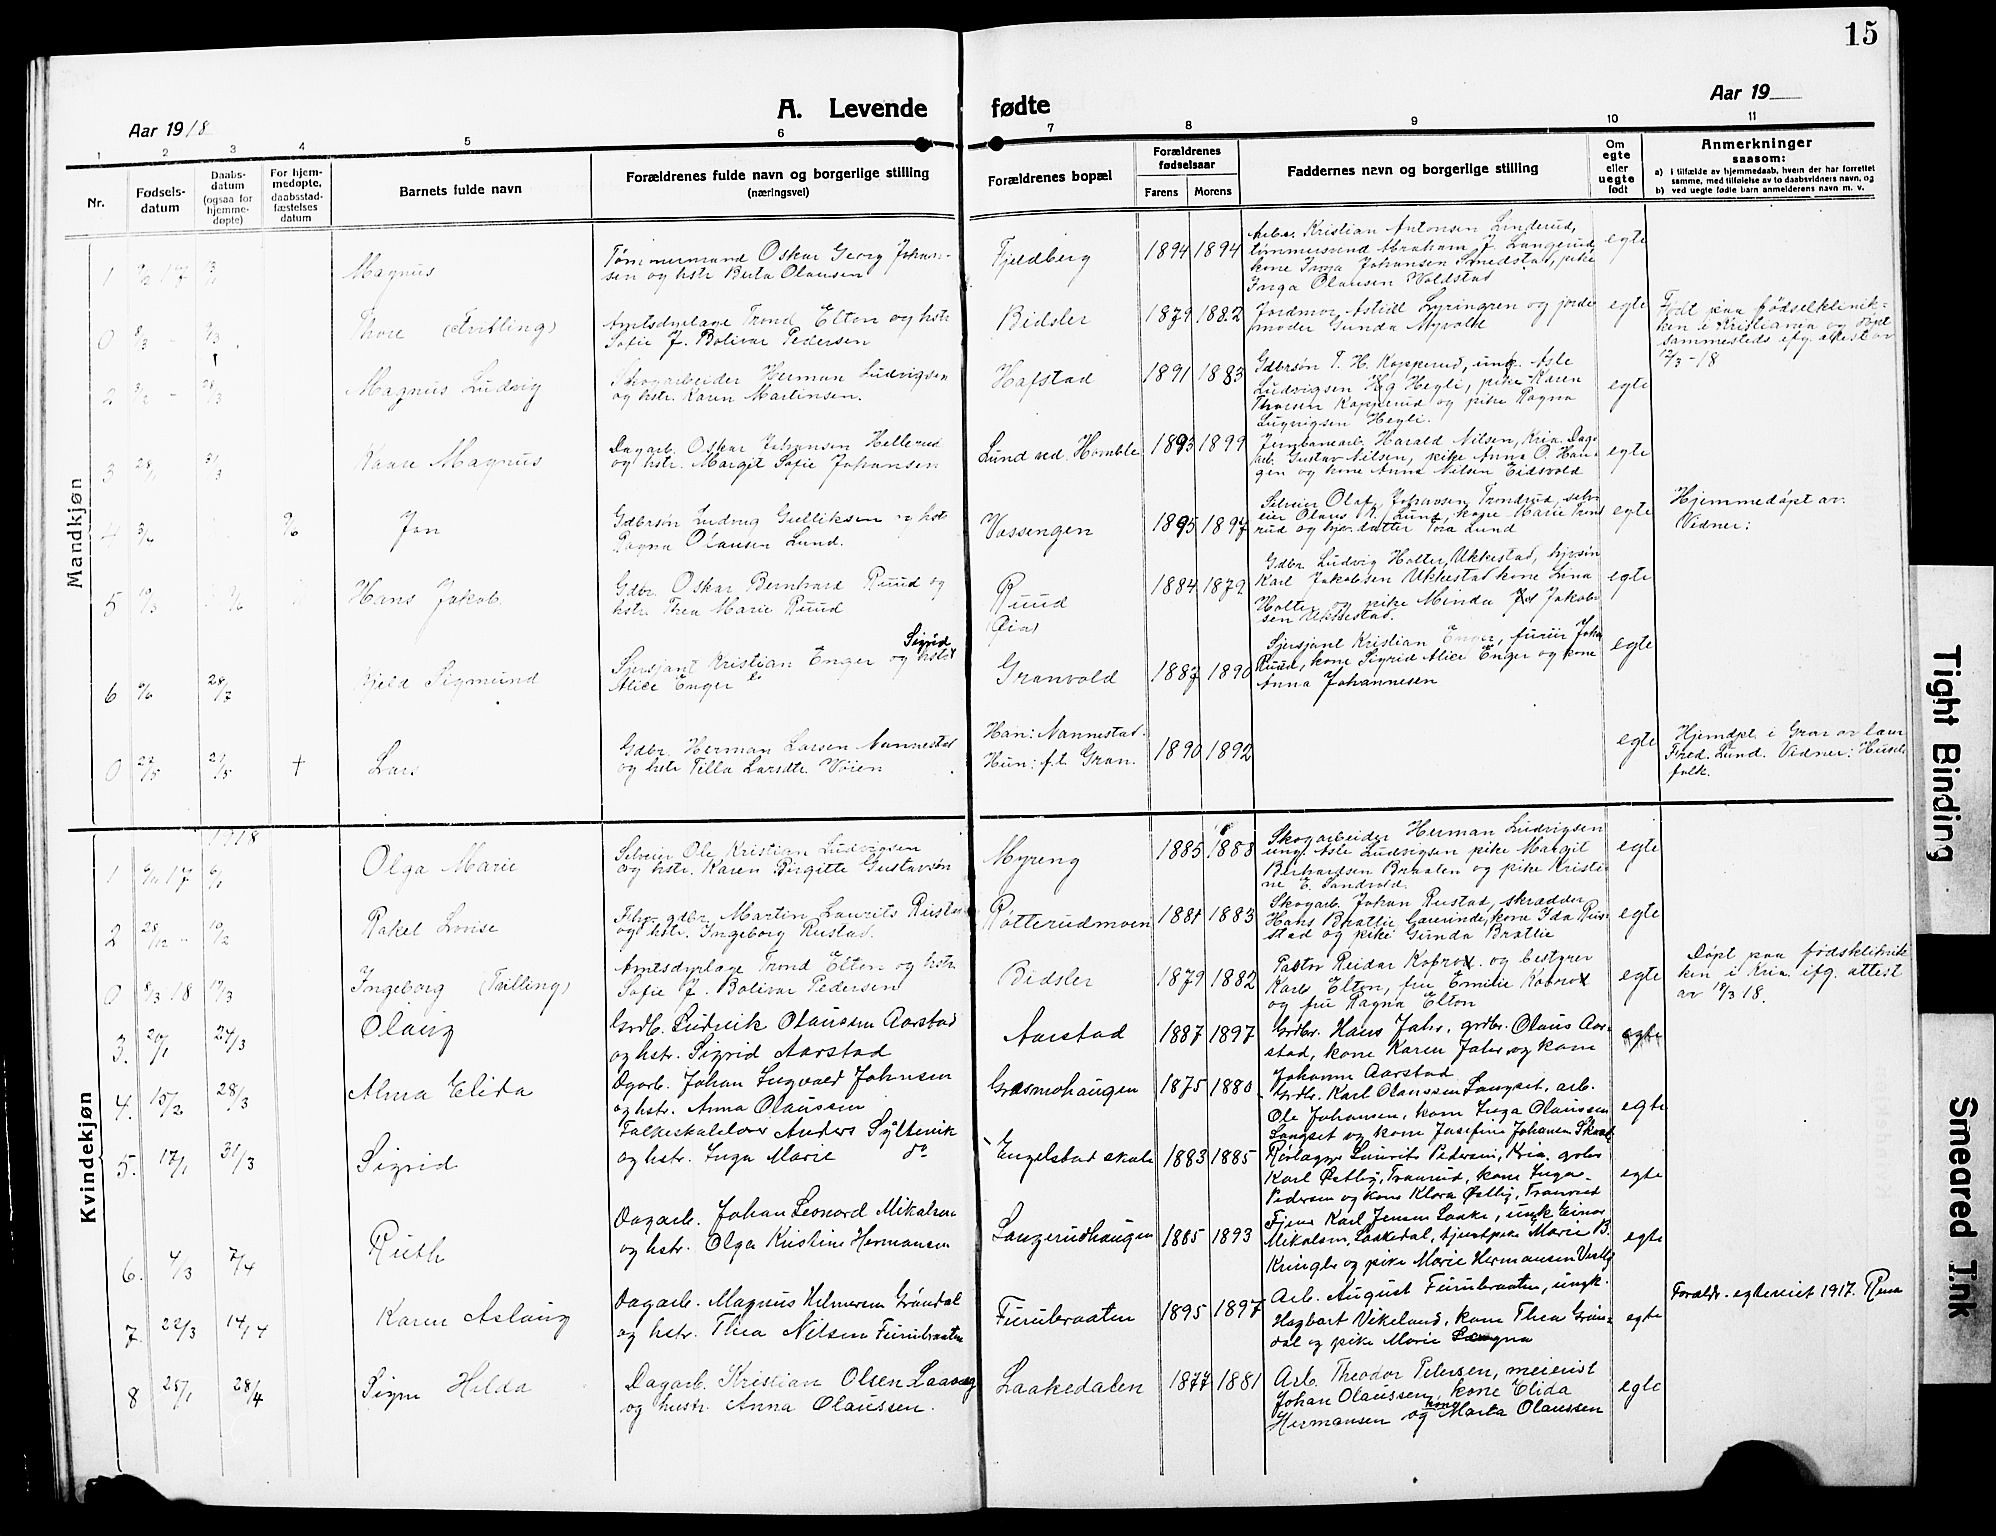 15
A. Levende fødte
Aar 1918
Aar 19
1 2 3 4 5 6 7 8 9 10 11
Nr.
Fødsels-
datum
Daabs-
datum
(ogsaa for
hjemme-
døpte)
For hjem-
medøpte,
daabsstad-
fæstelses
datum
Barnets fulde navn
Forældrenes fulde navn og borgerlige stilling
(næringsvei)
Forældrenes bopæl
Forældrenes
fødselsaar
Farens Morens
Faddernes navn og borgerlige stilling
Om
egte
eller
uegte
født
Anmerkninger
saasom:
a) i tilfælde av hjemmedaab, hvem der har forrettet
samme, med tilføielse av to daabsvidners navn, og
b) ved uegte fødte barn anmelderens navn m. v.
Mandkjøn
1
Magnus
Tømmermand Oskar Georg Johan-
sen og hstr Berta Olausen
Fjeldberg
1894 1894
Arb. Kristian Antonsen Linderud,
tømmermand Abraham J. Langerud,
kone Inga Johansen Smedstad, pike
Inga Olausen Voldstad
egte
0 8/3
Thore (Tvilling)
Amtsdyrlæge Trond Elton og hstr
Sofie J. Bolivar Pedersen
Bidsler
1879 1882
Jordmor Astidl Syringren og jorde
moder Gunda Myrvolt
egte
Født paa fødselklinik-
ken i Kristiania og døpt
sammesteds ifg. attest av
12/3-18
2 28/3
Magnus Ludvig
Skogarbeider Herman Ludvigsen
og hstr. Karen Martinsen.
Hafstad
1891 1883
Gdbrsøn T. H. Kopperud, ungk. Asle
Ludvigsen Hegli, pike Karen
Thoresen Kopperud og pike Ragna
Ludvigsen Hegli.
egte
3 31/3
Kaare Magnus
Dagarb. Oskar Johansen Hellerud
og hstr. Margit Sofie Johansen
Lund ved Homble
1895 1899
Jernbanearb. Harald Nilsen, Kria. Dag-
arb. Gustav Nilsen, pike Anna O. Han-
gen og kone Anna Nilsen Eidsvold
egte
4
Jon
Gdbrsøn Ludvig Gulliksen og hstr
Ragna Olausen Lund.
Vassengen
1895 1897
Selveier Olaf Johansen Trondrud, selv-
eier Olaus K. Lund, kone Marie Trond
rud og hjv. datter Tora Lund
egte
Hjemmedøpt av:
Vidner:
5 10/3
Hans Jakob
Gdbr. Oskar Bernhard Ruud og
hstr. Thea Marie Ruud
Ruud
(Øia)
1884 1879
Gdbr Ludvig Holter, Ukkestad, hjvsøn
Karl Jakobsen Ukkestad kone Lina
Holter og pike Minda Jakob-
sen Ukkestad.
egte
6 28/7
Kjeld Sigmund
Sersjant Kristian Enger og hstr Sigrid
Alice Enger
Granvold
1887 1890
Sersjant Kristian Enger, furir Joha
Ruud, kone Sigrid Alice Enger og kone
Anna Johannesen
egte
0 22/5 21/5 †
Lars
Gdbr. Herman Larsen Nannestad
og hstr Tilla Larsdtr. Vøien
Han: Nannestad.
Hun: f.t. Gran.
1890 1892
egte
Hjemdpt. i Gran av lam
Fred. Lund. Vidner: Husets
folk.
Kvindekjøn
1918
1
Olga Marie
Selveier Ole Kristian Ludvigsen
og hstr. Karen Birgitte Gustavsøn
Myreng
1885 1888
Skogarbeider Herman Ludvigsen
ung. Asle Ludvigsen pike Margit
Berhardsen Braaten og pike Kristi-
ne E. Sandvold.
egte
2 28/12 10/2
Rakel Lovise
Martin Laurits Rustad
og hstr. Ingeborg Rustad.
Rotterudmoen
1881 1883
Skogarb. Johan Rustad, skrædder
Hans Brattlie kone Ida Rus-
stad og pike Gunda Brattlie
egte
0 8/3 18
Ingeborg (Tvilling)
Amtsdyrlæge Trond Elton og hstr
Sofie J. Bolivar Pedersen
Bidsler
1879 1882
Pastor Reidar Kobro og bestyrer
Karl Elton, fru Emilie Kobro
og fru Ragna Elton
egte
Døpt paa fødseklinik
ken i Kria. ifg. attest
av 12/3 18.
3. 20/1 24/3
Olaug
Grdb. Ludvik Olaussen Aarstad
og hstr. Sigrid Aarstad
Aarstad
1887 1897
Grdbr. Hans Jahr, grdbr. Olaus Aar-
stad, kone Karen Jahr og kone
Johanne Aarstad
egte
4. 15/2 28/3
Alma Elida
Dgarb. Johan Ingvald Johnsen
og hstr. Anna Olaussen
Grasmohaugen
1875 1880
Grdbr. Karl Olaussen Langset, arb.
Ole Johansen, kone Inga Olaussen
Langset og kone Josefine Johansen
egte
5. 17/1 31/3
Sigrid
Folkeskolelærer Anders Syltevik
og hstr. Inga Marie do
Engelstad skole
1883 1885
Rørlægger Laurits Pedersen, Kria.
Karl Østby, Tranrud, kone Inga
Pedersen og kone Klara Østby, Tranrud
egte
6. 4/3 7/4
Ruth
Dagarb. Johan Leonard Mikalsen
og hstr. Olga Kristine Hermansen
Langerudhaugen
1885 1893
Karl Jensen Laake, ungk Einar
Mikalsen, Laakedal, tjenstpike Marie B.
Kringler og pike Marie Hermansen
egte
7. 22/3 14/4
Karen Aslaug
Dagarb. Magnus Hilmersen Grøndal
og hstr. Thea Nilsen Furubraaten
Furubraaten
1895 1897
Arb. August Furubraaten, ungk.
Hagbart Vikeland, kone Thea Grøn-
dal og pike Marie
egte
Foreldr. egteviet 1917.
8 25/1 28/4
Signe Hilda
Dagarb. Kristian Olsen
og hustr. Anna Olaussen.
Laakedalen
1877 1881
Arb. Theodor Petersen, meierist
Johan Olaussen, kone Elida
Hermansen og kone Marta Olaussen
egte
Tight Binding
Smeared Ink